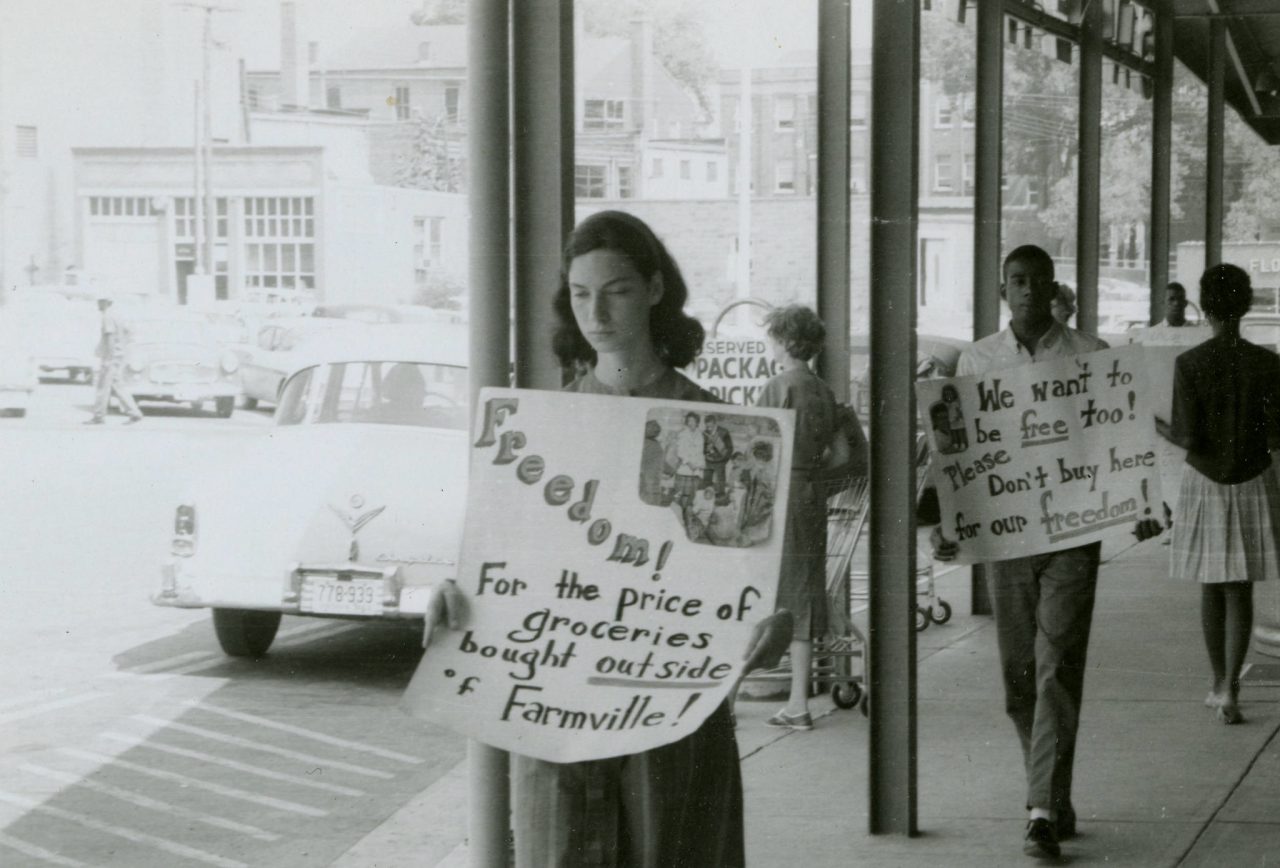 Freedom!
For the price of
groceries
bought outside
of Farmville!
778·939
SERVED
PACKAG
PICK
We want to
be free too!
Please
Don't buy here
for our freedom!
FLO